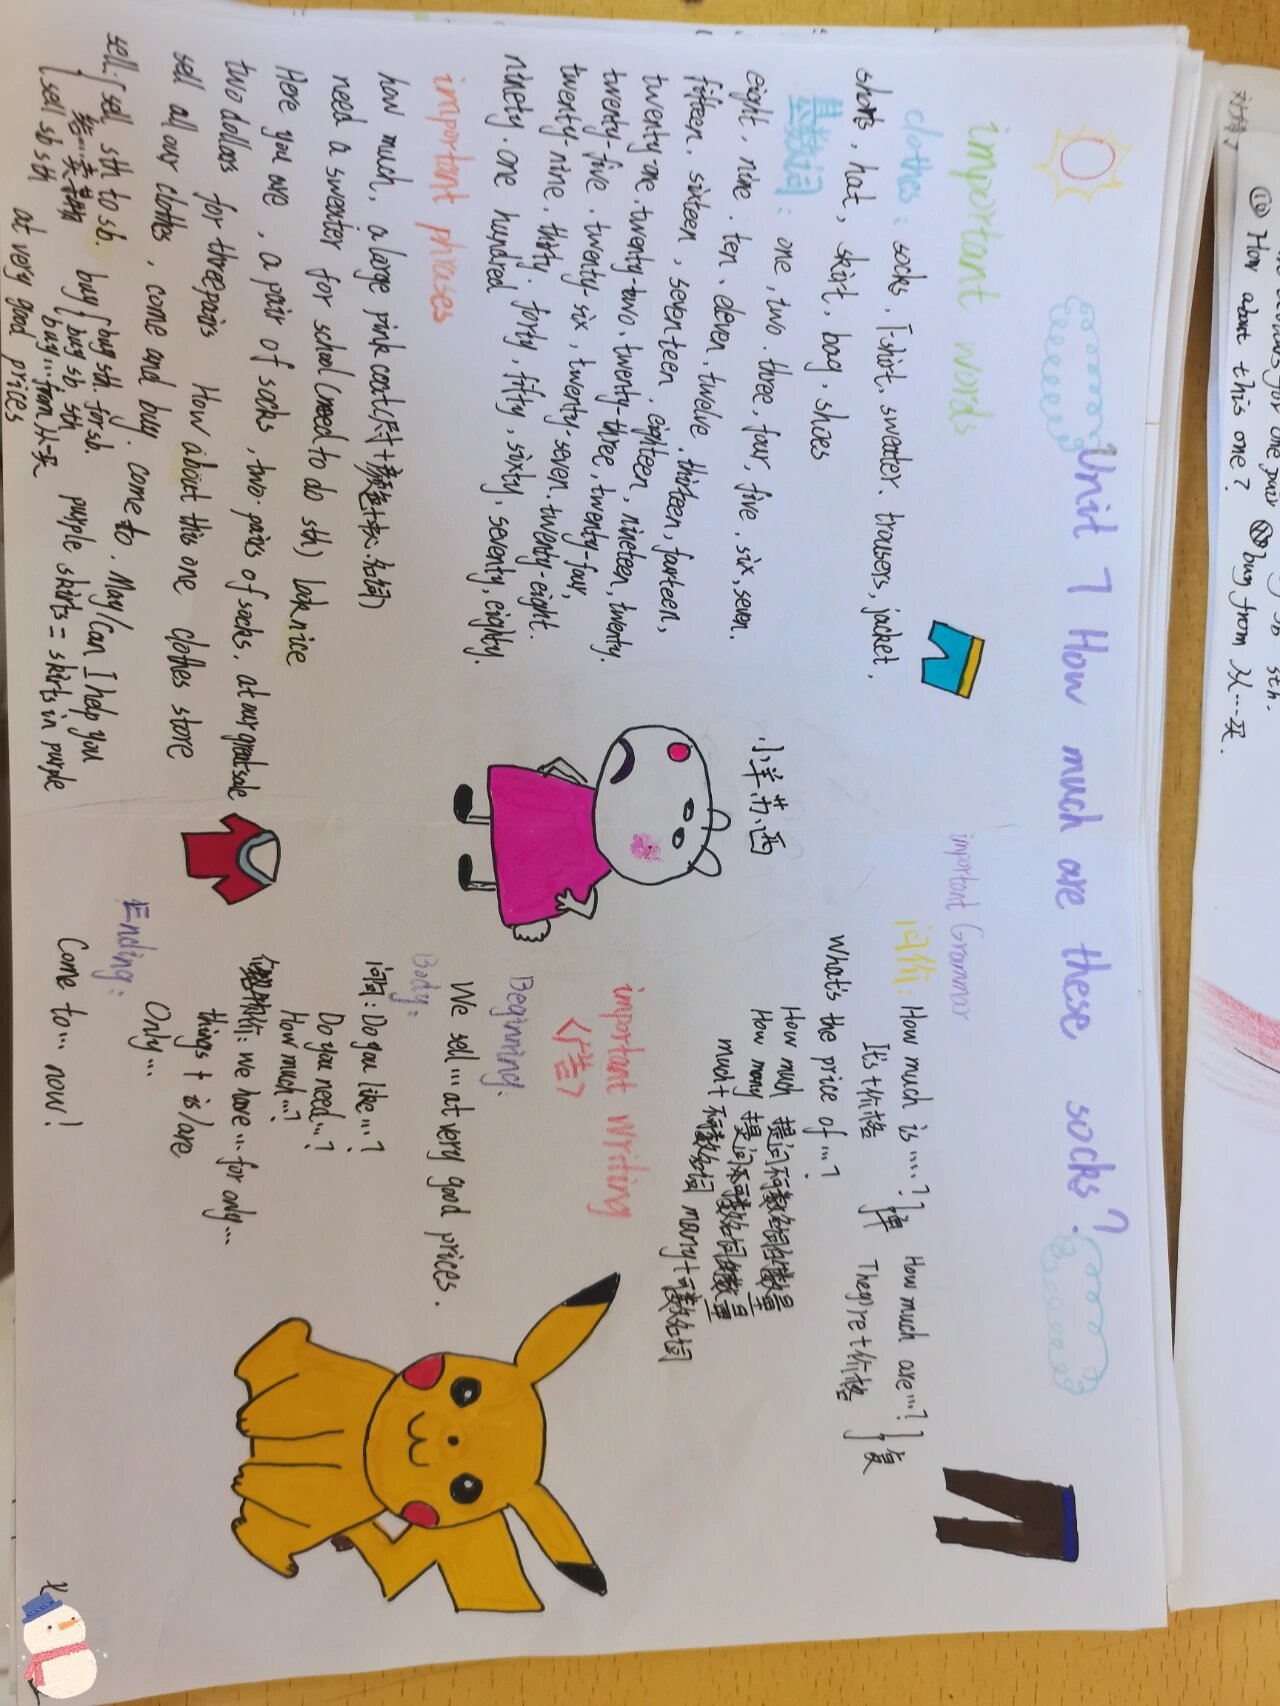 Unit 7 How much are these socks?
important words
clothes: socks, T-shirt, sweater, trousers, jacket,
shorts, hat, skirt, bag, shoes
基数词: one, two, three, four, five, six, seven.
eight, nine. ten. eleven, twelve. thirteen, forteen,
fifteen. sixteen, seventeen. eighteen, nineteen, twenty.
twenty-one. twenty-two. twenty-three, twenty-four,
twenty-five. twenty-six, twenty-seven. twenty-eight.
twenty-nine. thirty. forty, fifty, sixty, seventy, eighty.
ninety. one hundred
important phrases
how much, a large pink coat(尺寸+颜色+名词)
need a sweater for school(need to do sth) look nice
Here you are, a pair of socks, two pairs of socks. at our great sale
two dollars for three pairs How about this one clothes store
sell all our clothes, come and buy. come to. May/Can I help you
sell. sell sth to sb. buy buy sth. for sb. purple skirts = skirts in purple
给…卖某物 buy sb. sth
sell sb sth buy…from 从…买
at very good prices
小羊苏西
important Grammar
问价: How much is……? 单 How much are…? 复
It's+价格 They're+价格
What's the price of…?
How much 提问不可数名词的数量
How many 提问可数名词的数量
much+不可数名词 many+可数名词
important writing
<广告>
Beginning:
We sell… at very good prices.
Body:
问: Do you like…?
Do you need…?
How much…?
物价: we have… for only…
things + is/are
Only…
Ending:
Come to… now!
刘
How about this one?
buy from 从…买.
sth.